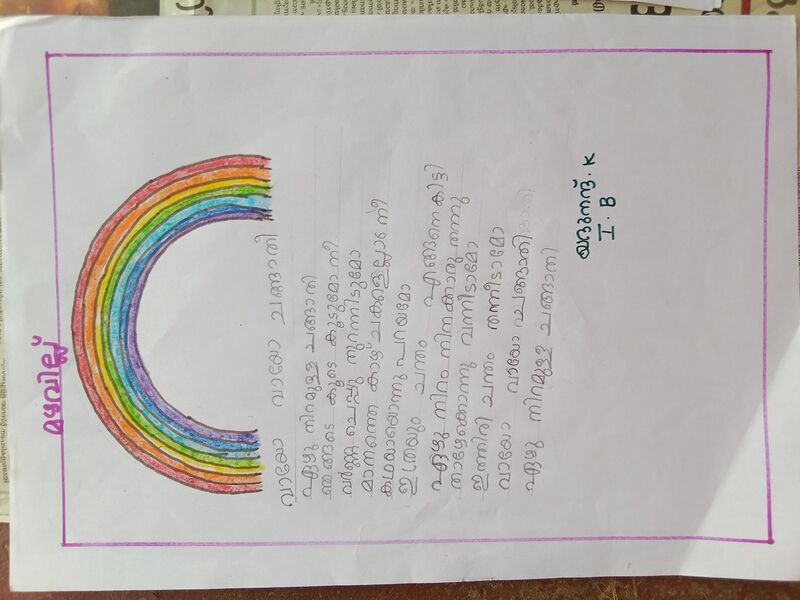 മഴവില്ല്
വായോ വായോ ചങ്ങാതി
ഏഴു നിറമുള്ള ചങ്ങാതി
ഞങ്ങടെ കൂടെ കൂടുമോ നീ
വർണ്ണ ചെപ്പു തുറന്നിടുമോ
മാനത്തെ കാഴ്ചകളെല്ലാം നീ
കഥയായൊന്നു പറയുമോ
ഇത്രയും ചന്തം എങ്ങനെ കിട്ടി
ഏഴു നിറം നിനക്കാരു തന്നു
താഴേക്കൊന്നു വന്നീടാമോ
ഇത്തിരി ചന്തം തന്നീടാമോ
വായോ വായോ ചങ്ങാതി
ഏഴു നിറമുള്ള ചങ്ങാതി
യദുനന്ദ്. K
I. B